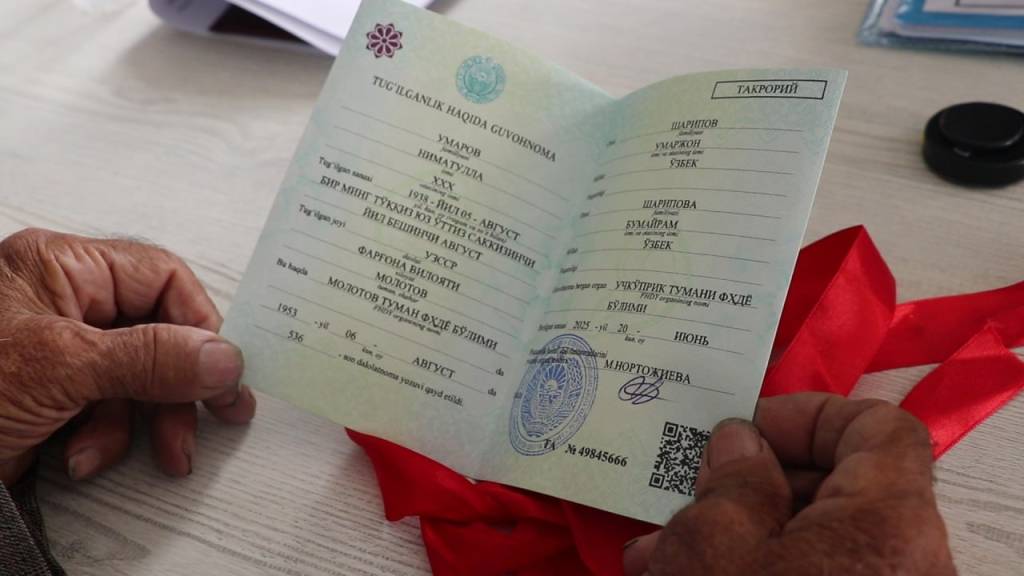 TUG'ILGANLIK HAQIDA GUVOHNOMA
УМАРОВ
familiyasi
НИМАТУЛЛА
ismi
ХХХ
otasining ismi
Tug'ilgan sanasi
1938 - ЙИЛ 05 - АВГУСТ
БИР МИНГ ТЎҚҚИЗ ЮЗ ЎТТИЗ САККИЗИНЧИ
ЙИЛ БЕШИНЧИ АВГУСТ
Tug'ilgan joyi
УЗССР
davlat
ФАРҒОНА ВИЛОЯТИ
viloyat
МОЛОТОВ
tuman, shahar
Bu haqda
МОЛОТОВ ТУМАН ФҲДЁ БЎЛИМИ
FHDY organining nomi
1953 -yil 06 - АВГУСТ da
kun, oy
536 -son dalolatnoma yozuvi qayd etildi.
ТАКРОРИЙ
ШАРИПОВ
familiyasi
УМАРЖОН
ismi va otasining ismi
ЎЗБЕК
ШАРИПОВА
familiyasi
БУМАЙРАМ
ismi va otasining ismi
ЎЗБЕК
bergan organ УЧКЎПРИК ТУМАНИ ФҲДЁ
FHDY organining nomi
БЎЛИМИ
Berilgan sanasi 2025 -yil 20 - ИЮНЬ
kun, oy
М.НОРТОЖИЕВА
ТА № 49845666